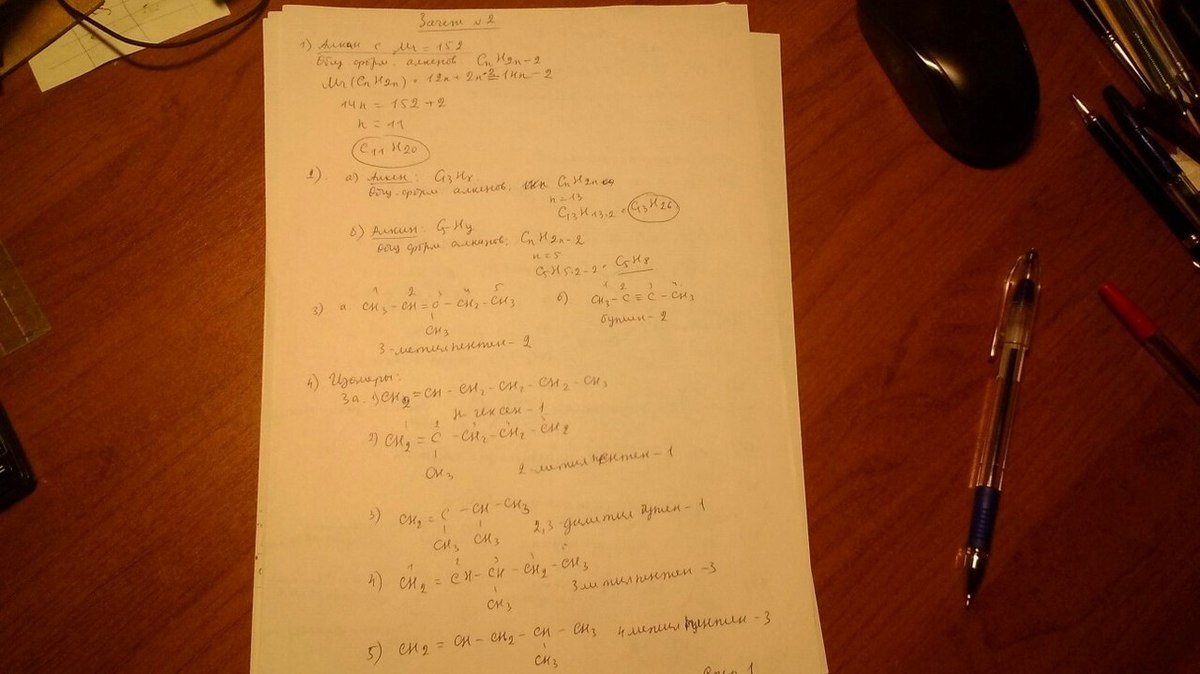 Зачет №2
1) Алкан с Mr = 152
Общ. форм. алкенов CnH2n-2
Mr(CnH2n) = 12n + 2n-2 = 14n - 2
14n = 152 + 2
n = 11
C11H20
2). а) Алкен: C13Hx
Общ. форм алкенов: CnH2n
n = 13
C13H13·2 = C13H26
б) Алкин: C5Hy
Общ форм алкинов: CnH2n-2
n = 5
C5H5·2-2 = C5H8
1 2 3 4 5
3) а. CH3 - CH = C - CH2 - CH3
CH3
3-метилпентен-2
1 2 3 4
б) CH3 - C ≡ C - CH3
бутин-2
4) Изомеры:
3а. 1) CH2 = CH - CH2 - CH2 - CH2 - CH3
н-гексен-1
2) CH2 = C - CH2 - CH2 - CH2
CH3
2-метилпентен-1
3) CH2 = C - CH - CH3
CH3 CH3
2,3-диметил бутен-1
4) CH2 = CH - CH - CH2 - CH3
CH3
3метилпентен-3
5) CH2 = CH - CH2 - CH - CH3
CH3
4метил пентен-3